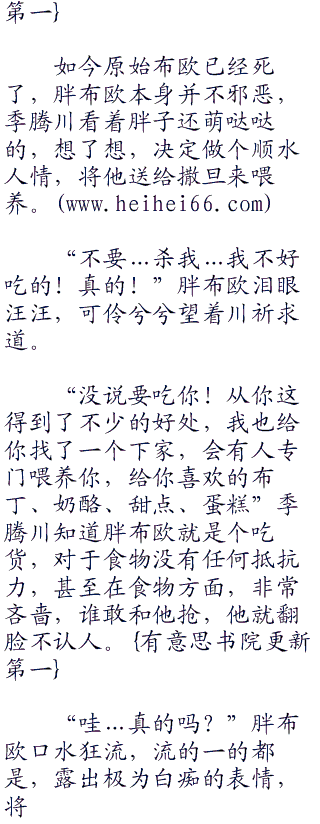 第一}
如今原始布欧已经死
了，胖布欧本身并不邪恶，
季腾川看着胖子还萌哒哒
的，想了想，决定做个顺水
人情，将他送给撒旦来喂
养。(www.heihei66.com)
“不要…杀我…我不好
吃的！真的！”胖布欧泪眼
汪汪，可伶兮兮望着川祈求
道。
“没说要吃你！从你这
得到了不少的好处，我也给
你找了一个下家，会有人专
门喂养你，给你喜欢的布
丁、奶酪、甜点、蛋糕”季
腾川知道胖布欧就是个吃
货，对于食物没有任何抵抗
力，甚至在食物方面，非常
吝啬，谁敢和他抢，他就翻
脸不认人。{有意思书院更新
第一}
“哇…真的吗？”胖布
欧口水狂流，流的一的都
是，露出极为白痴的表情，
将